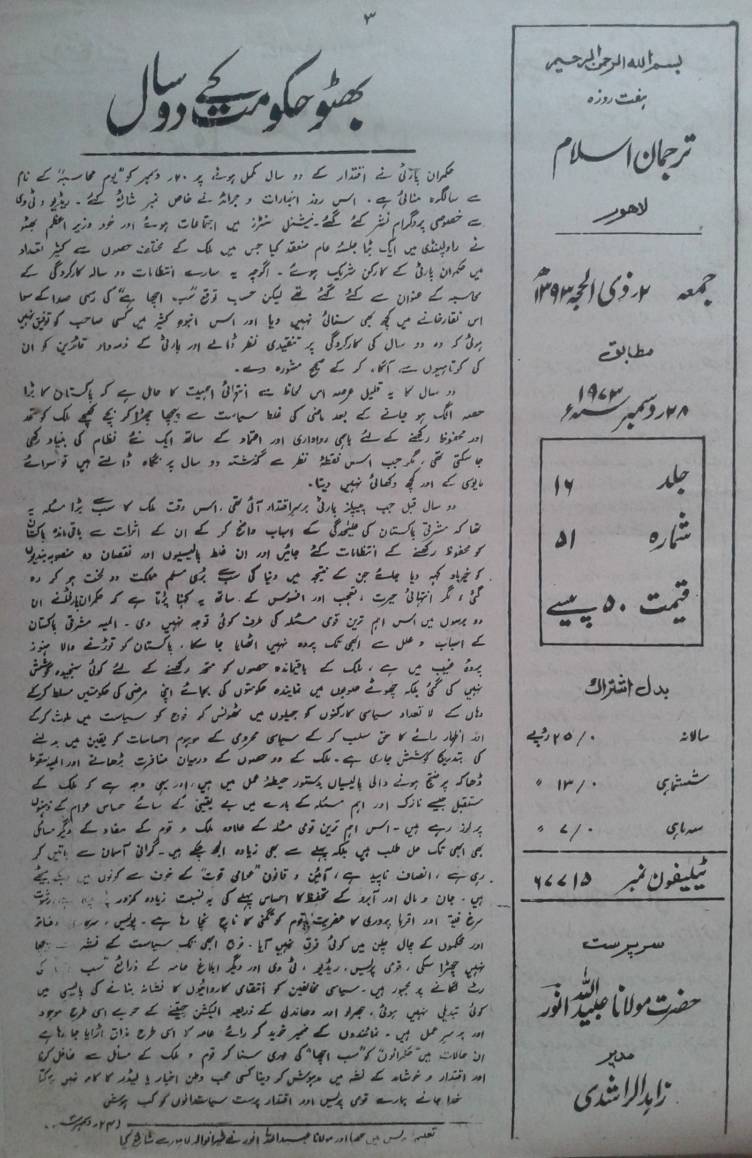 ۳
بھٹو حکومت کے دو سال
حکمران پارٹی نے اقتدار کے دو سال مکمل ہونے پر ۲۰ر دسمبر کو "یوم محاسبہ" کے نام
سے سالگرہ منائی ہے۔ اس روز اخبارات و جرائد نے خاص نمبر شائع کئے۔ ریڈیو و ٹی وی
سے خصوصی پروگرام نشر کئے گئے۔ نیشنل سنٹرز میں اجتماعات ہوئے اور خود وزیر اعظم بھٹو
نے راولپنڈی میں ایک بڑا جلسۂ عام منعقد کیا جس میں ملک کے مختلف حصوں سے کثیر تعداد
میں حکمران پارٹی کے کارکن شریک ہوئے۔ اگرچہ یہ سارے انتظامات دو سالہ کارکردگی کے
محاسبہ کے عنوان سے کئے گئے تھے لیکن حسب توقع "سب اچھا ہے" کی رسمی صدا کے سوا
اس نقارخانے میں کچھ بھی سنائی نہیں دیا اور اس انبوہ کثیر میں کسی صاحب کو توفیق نہیں
ہوئی کہ وہ دو سال کی کارکردگی پر تنقیدی نظر ڈالے اور پارٹی کے ذمہ دار قائدین کو ان
کی کوتاہیوں سے آگاہ کر کے صحیح مشورہ دے۔
دو سال کا یہ قلیل عرصہ اس لحاظ سے انتہائی اہمیت کا حامل ہے کہ پاکستان کا بڑا
حصہ الگ ہو جانے کے بعد ماضی کی غلط سیاست سے پیچھا چھڑا کر بچے کھچے ملک کو متحد
اور محفوظ رکھنے کے لئے باہمی رواداری اور اعتماد کے ساتھ ایک نئے نظام کی بنیاد رکھی
جا سکتی تھی، مگر جب اس نقطۂ نظر سے گذشتہ دو سال پر نگاہ ڈالتے ہیں تو سوائے
مایوسی کے اور کچھ دکھائی نہیں دیتا۔
دو سال قبل جب پیپلز پارٹی برسراقتدار آئی تھی، اس وقت ملک کا سب سے بڑا مسئلہ یہ
تھا کہ مشرقی پاکستان کی علیحدگی کے اسباب واضح کر کے ان کے اثرات سے باقی ماندہ پاکستان
کو محفوظ رکھنے کے انتظامات کئے جائیں اور ان غلط پالیسیوں اور نقصان دہ منصوبہ بندیوں
کو خیرباد کہہ دیا جائے جن کے نتیجہ میں دنیا کی سب سے بڑی مسلم مملکت دو لخت ہو کر رہ
گئی، مگر انتہائی حیرت، تعجب اور افسوس کے ساتھ یہ کہنا پڑتا ہے کہ حکمران پارٹی نے ان
دو برسوں میں اس اہم ترین قومی مسئلہ کی طرف کوئی توجہ نہیں دی۔ المیہ مشرقی پاکستان
کے اسباب و علل سے ابھی تک پردہ نہیں اٹھایا جا سکا۔ پاکستان کو توڑنے والا ہنوز
پردۂ غیب میں ہے، ملک کے باقیماندہ حصوں کو متحد رکھنے کے لئے کوئی سنجیدہ کوشش
نہیں کی گئی بلکہ چھوٹے صوبوں میں نمایندہ حکومتوں کی بجائے اپنی مرضی کی حکومتیں مسلط کرکے
وہاں کے لاتعداد سیاسی کارکنوں کو جیلوں میں ٹھونس کر فوج کو سیاست میں ملوث کرکے
اور اظہار رائے کا حق سلب کر کے سیاسی محرومی کے موہوم احساسات کو یقین میں بدلنے
کی بتدریج کوشش جاری ہے۔ ملک کے دو حصوں کے درمیان منافرت بڑھانے اور المیہ سقوط
ڈھاکہ پر منتج ہونے والی پالیسیاں بدستور حیطۂ عمل میں ہیں، اور یہی وجہ ہے کہ ملک کے
مستقبل جیسے نازک اور اہم مسئلہ کے بارے میں بے یقینی کے سائے حساس عوام کے ذہنوں
پر لرز رہے ہیں۔ اس اہم ترین قومی مسئلہ کے علاوہ ملک و قوم کے مفاد کے دیگر مسائل
بھی ابھی تک حل طلب ہیں بلکہ پہلے سے بھی زیادہ الجھ چکے ہیں۔ گرانی آسمان سے باتیں کر
رہی ہے، انصاف ناپید ہے، آئین و قانون "عوامی قوت" کے خوف سے کونوں میں دبکے بیٹھے
ہیں۔ جان و مال اور آبرو کے تحفظ کا احساس پہلے کی بہ نسبت زیادہ کمزور ہے، رشوت
سرخ فیتہ اور اقربا پروری کا عفریت قوم کو تگنی کا ناچ نچا رہا ہے۔ پولیس، سرکاری دفاتر
اور محکموں کے چال چلن میں کوئی فرق نہیں آیا۔ فوج ابھی تک سیاست کے نشہ سے پیچھا
نہیں چھڑا سکی، قومی پریس، ریڈیو، ٹی وی اور دیگر ابلاغ عامہ کے ذرائع "سب کی
رٹ لگانے پر مجبور ہیں۔ سیاسی مخالفین کو انتقامی کاروائیوں کا نشانہ بنانے کی پالیسی میں
کوئی تبدیلی نہیں ہوئی، جھرلو اور دھاندلی کے ذریعہ الیکشن جیتنے کے حربے اسی طرح موجود
اور برسر عمل ہیں۔ نمائندوں کے ضمیر خرید کر رائے عامہ کا اسی طرح مذاق اڑایا جا رہا ہے
ان حالات میں حکمرانوں کو "سب اچھا" کی لوری سنا کر قوم و ملک کے مسائل سے غافل کرنا
اور اقتدار و خوشامد کے نشہ میں مدہوش کر دینا کسی محب وطن اخبار یا لیڈر کا کام نہیں ہو سکتا
خدا جانے ہمارے قومی پریس اور اقتدار پرست سیاستدانوں کو کب ہوش
بسم اللہ الرحمن الرحیم
ہفت روزہ
ترجمان اسلام
لاہور
جمعہ ۲ر ذی الحجہ ۱۳۹۳ھ
مطابق
۲۸ر دسمبر سنہ ۱۹۷۳ء
جلد ۱۶
شمارہ ۵۱
قیمت ۵۰ پیسے
بدل اشتراک
سالانہ ۲۵/۰ روپے
ششماہی ۱۳/۰ "
سہ ماہی ۷/۰ "
ٹیلیفون نمبر ۶۷۷۱۵
سرپرست
حضرت مولانا عبیداللہ انور
مدیر
زاہد الراشدی